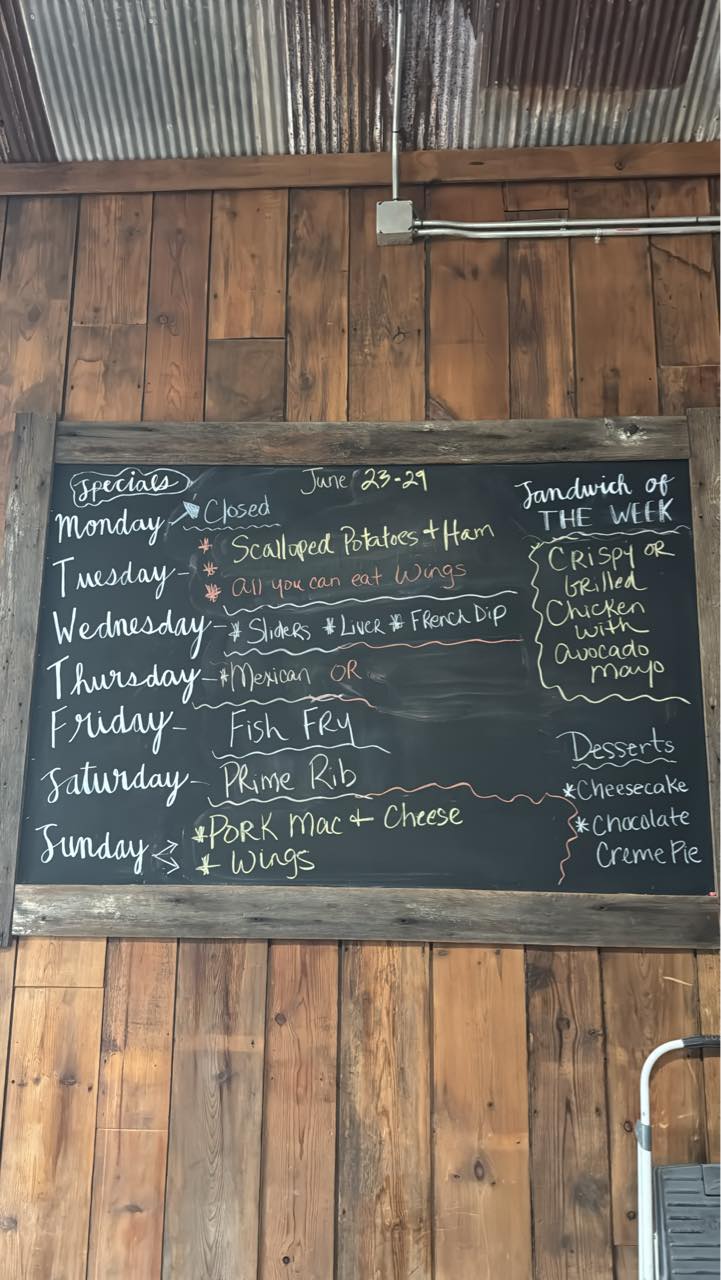 Specials
June 23-29
Monday Closed
* Scalloped Potatoes + Ham
Tuesday - *
* all you can eat Wings
Wednesday - * Sliders * Liver * French Dip
Thursday - * Mexican OR
Friday - Fish Fry
Saturday - Prime Rib
Sunday * Pork Mac + Cheese
+ Wings
Sandwich of
THE WEEK
Crispy or
Grilled
Chicken
with
avocado
mayo
Desserts
* Cheesecake
* Chocolate
Creme Pie